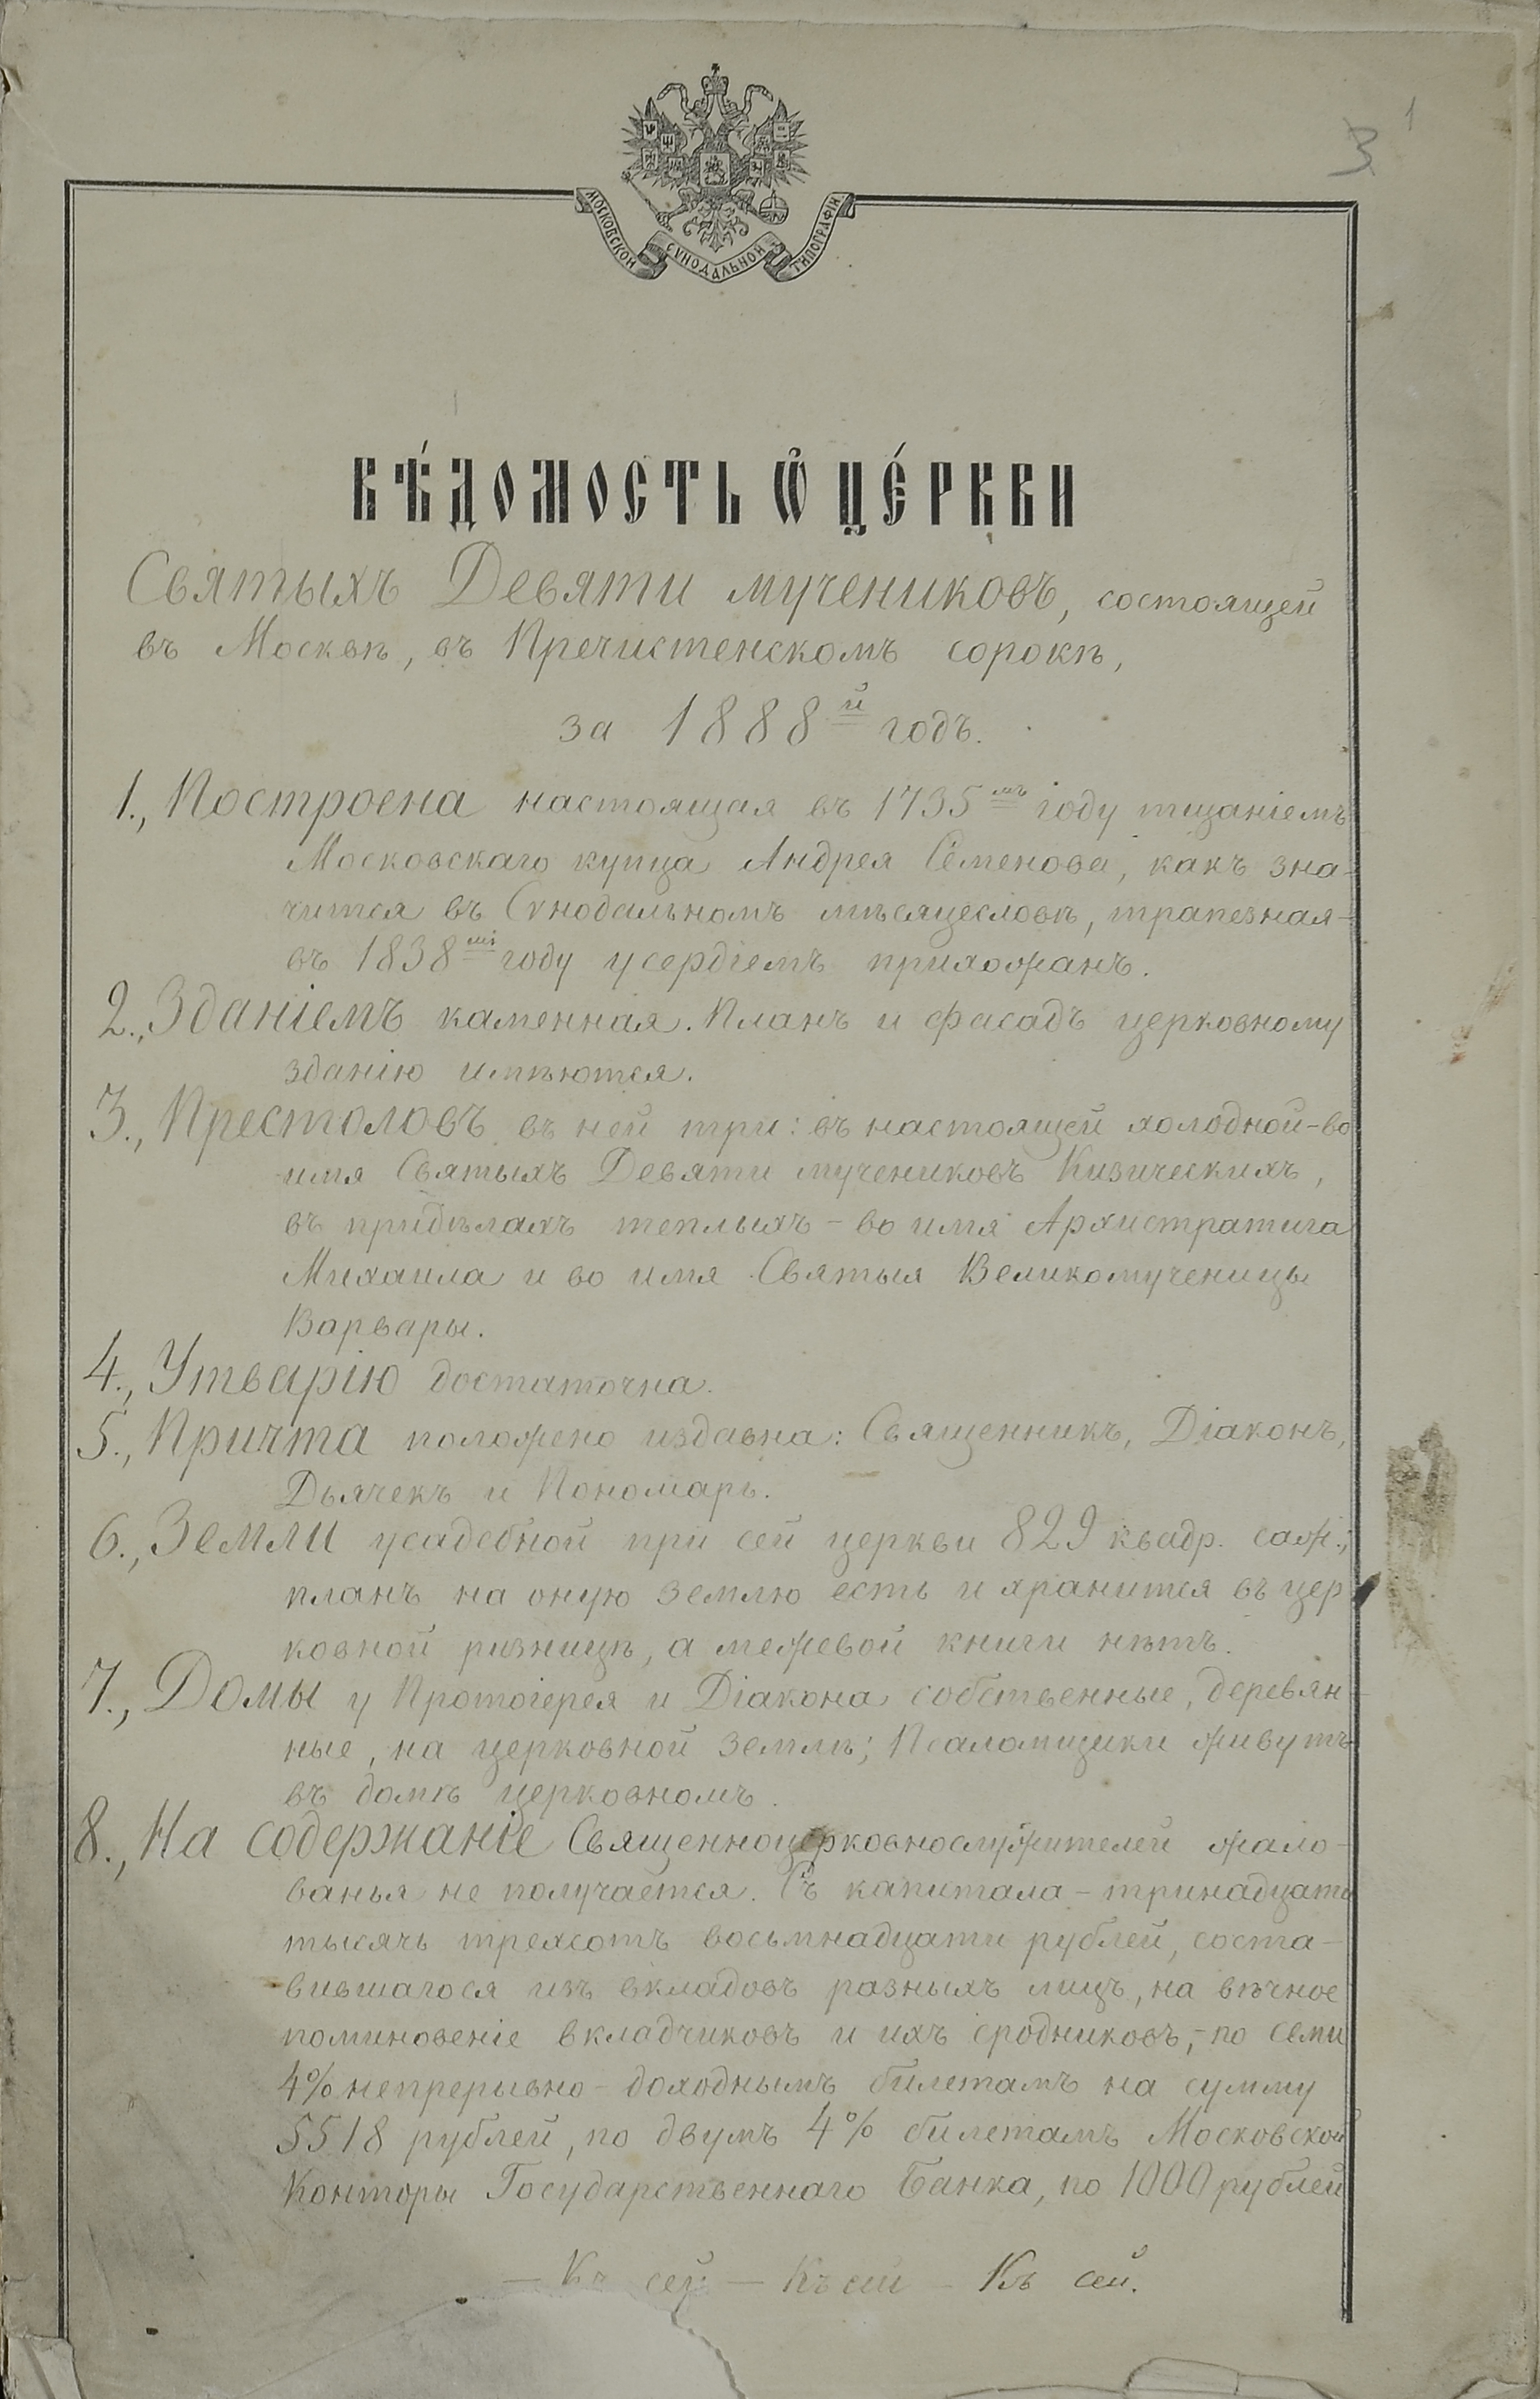 3 1
МОСКОВСКОЙ СѴНОДАЛЬНОЙ ТИПОГРАФІИ
ВѢ́ДОМОСТЬ Ѽ ЦЕ́РКВИ
Святыхъ Девяти мучениковъ, состоящей
въ Москвѣ, въ Пречистенскомъ сорокѣ,
за 1888й годъ.
1., Построена настоящая въ 1735мъ году тщаніемъ
Московскаго купца Андрея Семенова, какъ зна-
чится въ Сѵнодальномъ мѣсяцесловѣ, трапезная-
въ 1838мъ году усердіемъ прихожанъ.
2., Зданіемъ каменная. Планъ и фасадъ церковному
зданію имѣются.
3., Престоловъ въ ней три: въ настоящей холодной-во
имя Святыхъ Девяти мучениковъ Кизическихъ,
въ придѣлахъ теплыхъ - во имя Архистратига
Михаила и во имя Святыя Великомученицы
Варвары.
4., Утварію достаточна.
5., Причта положено издавна: Священникъ, Діаконъ,
Дьячекъ и Пономарь.
6., Земли усадебной при сей церкви 829 квадр. саж.;
планъ на оную землю есть и хранится въ цер
ковной ризницѣ, а межевой книги нѣтъ.
7., Домы у Протоіерея и Діакона собственные, деревян-
ные, на церковной землѣ; Псаломщики живутъ
въ домѣ церковномъ.
8., На содержаніе Священноцерковнослужителей жало-
ванья не получается. Съ капитала - тринадцать
тысячъ трехсотъ восьмнадцати рублей, соста-
вившагося изъ вкладовъ разныхъ лицъ, на вѣчное
поминовеніе вкладчиковъ и ихъ сродниковъ,- по семи
4% непрерывно-доходнымъ билетамъ на сумму
5518 рублей, по двумъ 4% билетамъ Московской
Конторы Государственнаго Банка, по 1000 рублей
— Къ сей — Къ сей - Къ сей.